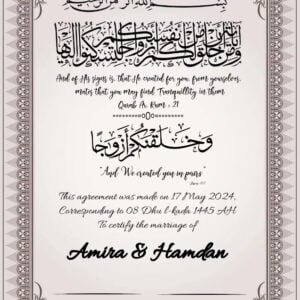 بسم الله الرحمن الرحيم
ومن آياته أن خلق لكم من أنفسكم أزواجا لتسكنوا إليها
And of His signs is that He created for you, from yourselves,
mates that you may find Tranquillity in them
Qurab Ar. Rum : 21
وخلقناكم أزواجا
"And We created you in pairs"
This agreement was made on 17 May 2024,
Corresponding to 08 Dhu l-kada 1445 AH
To certify the marriage of
Amira & Hamdan